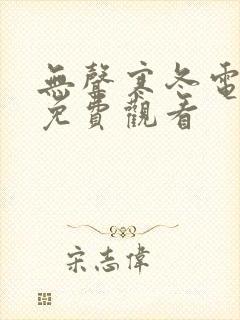 無聲寒冬電
免費觀看
宋志偉